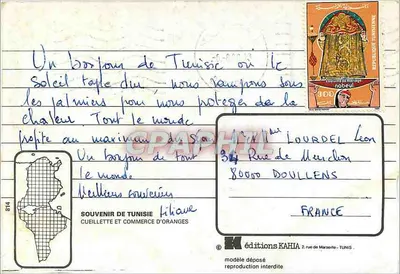 Un bonjour de Tunisie où le
soleil tape dur, nous rampons sous
les palmiers pour nous protéger de la
chaleur Tout le monde
profite au maximum du
Un bonjour de tout
le monde
Meilleurs souvenirs
Liliane
SOUVENIR DE TUNISIE
CUEILLETTE ET COMMERCE D'ORANGES
814
REPUBLIQUE TUNISIENNE
nabeul
300
CPAPHIL
LOURDEL Léon
34 Rue de
80000 DOULLENS
FRANCE
K éditions KAHIA 2, rue de Marseille - TUNIS
modèle déposé
reproduction interdite